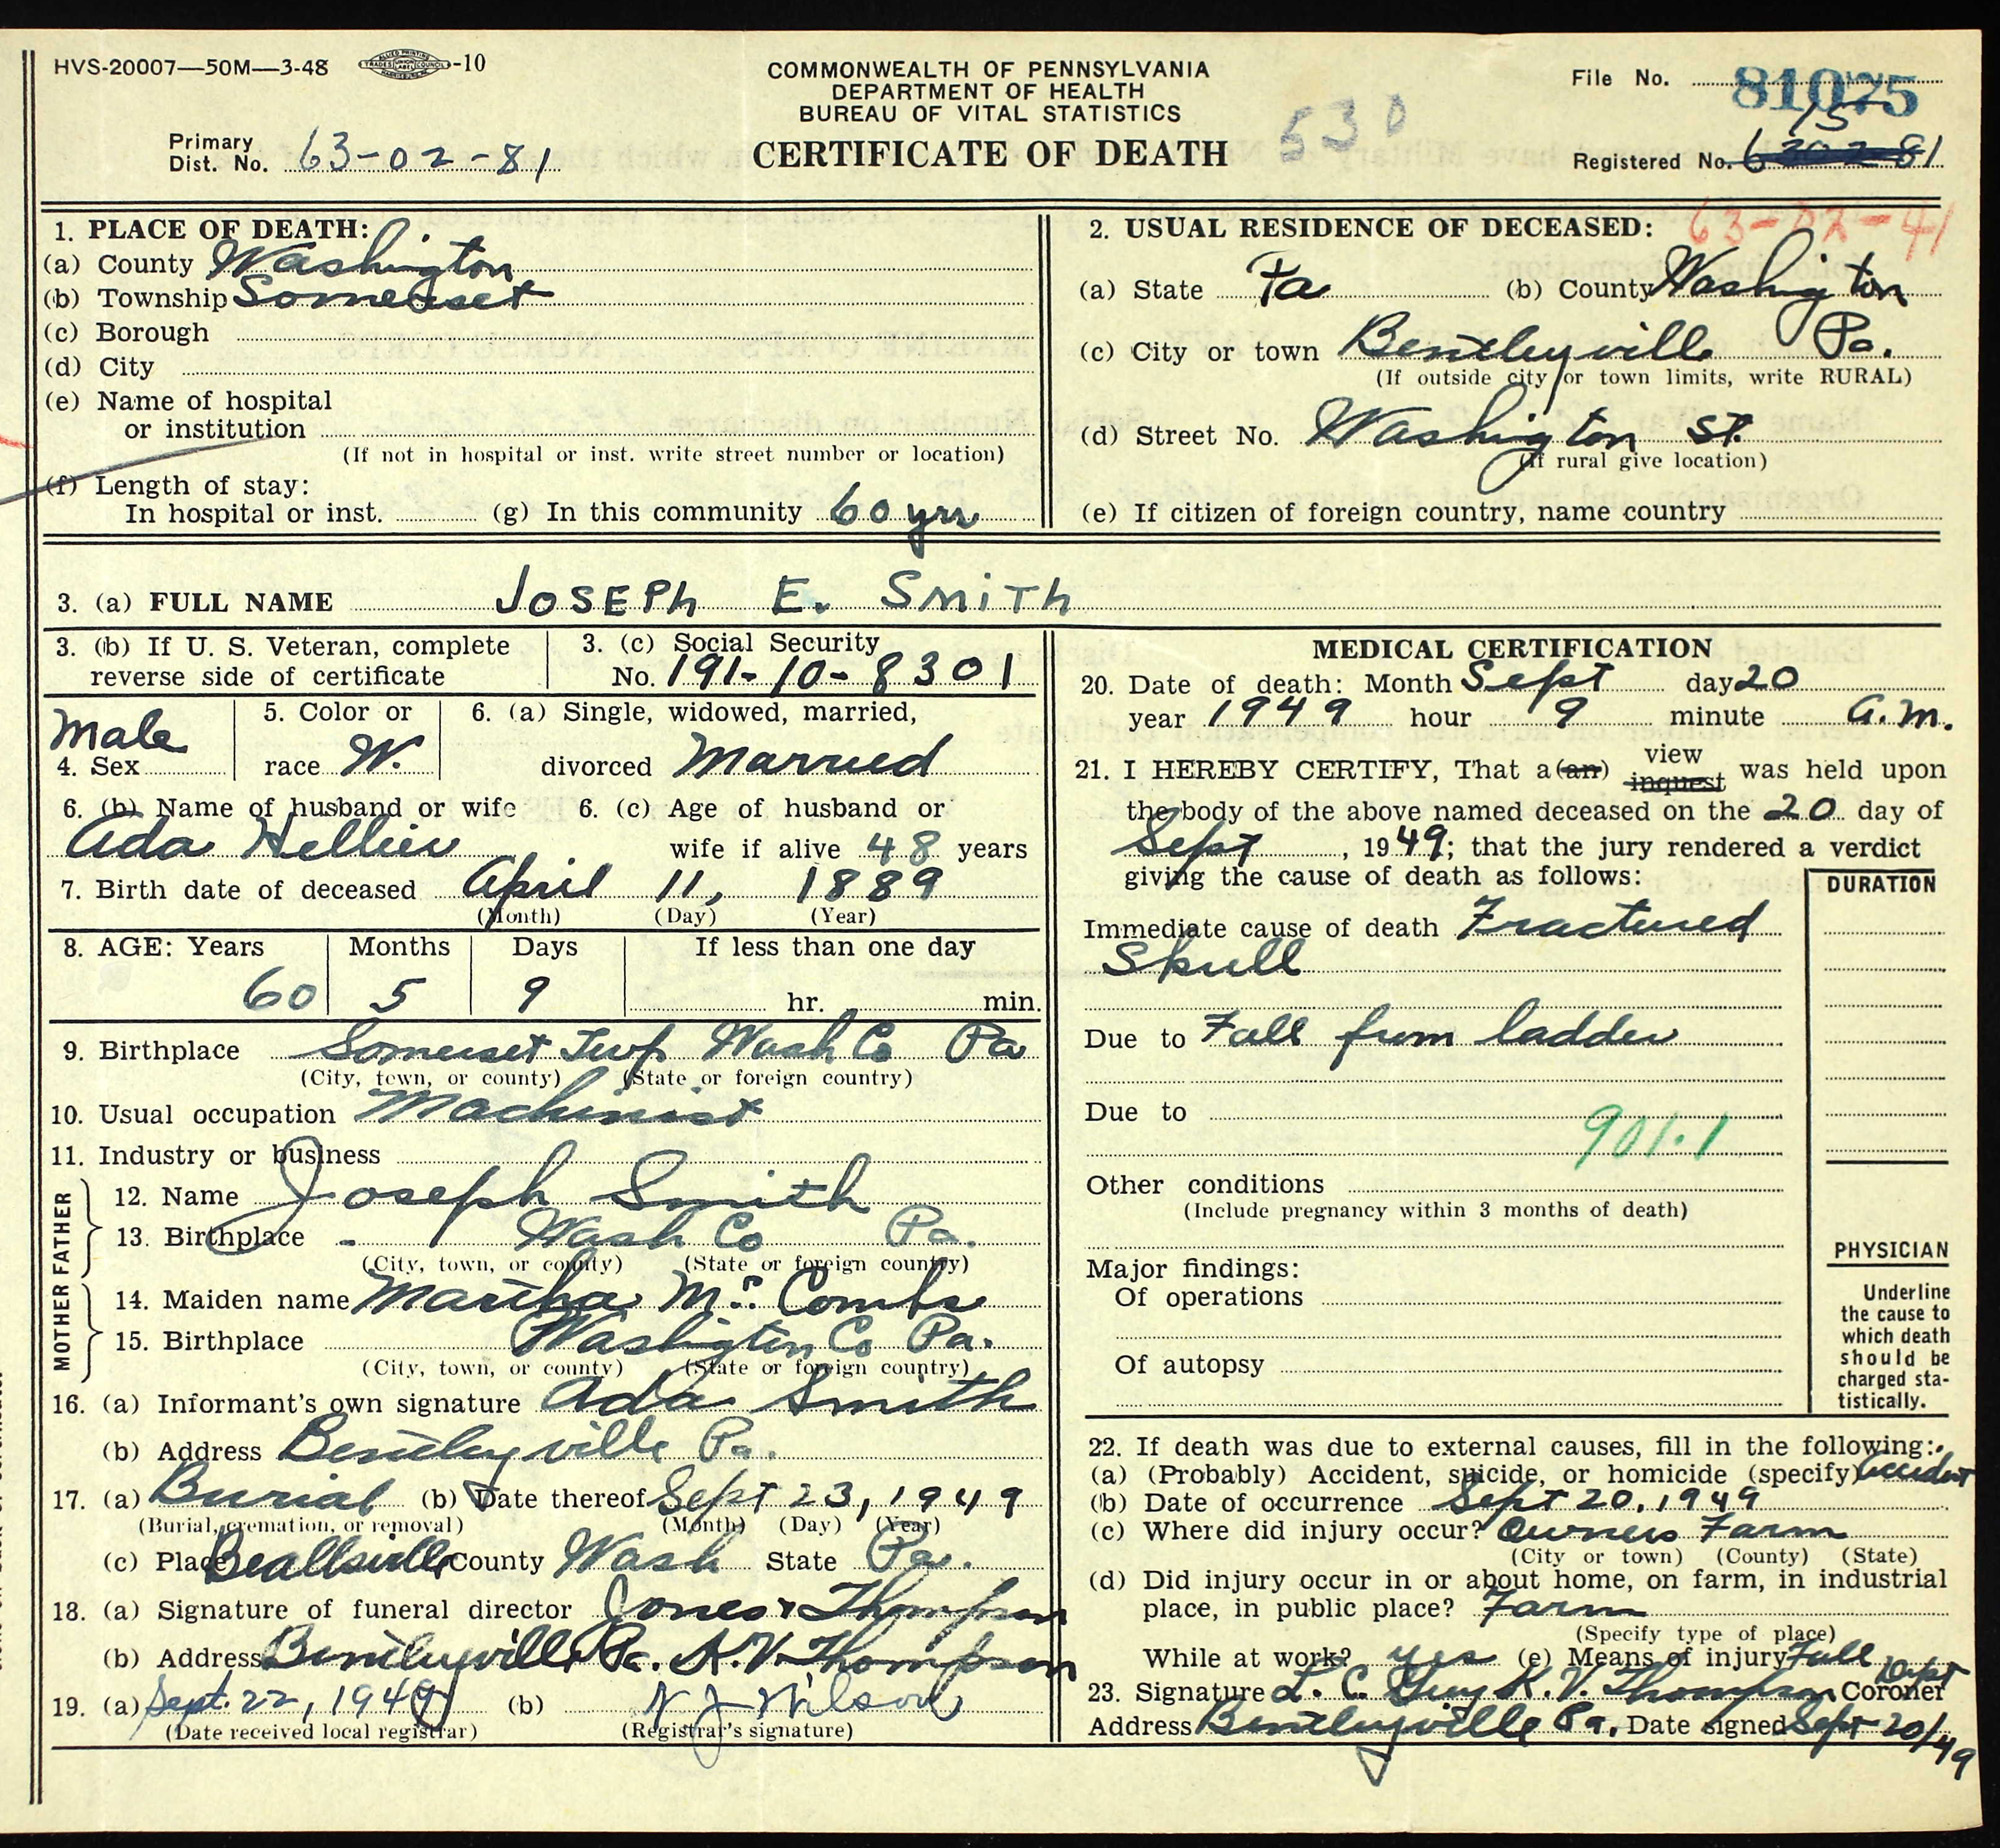 HVS-20007—50M—3-48 -10
COMMONWEALTH OF PENNSYLVANIA
DEPARTMENT OF HEALTH
BUREAU OF VITAL STATISTICS
CERTIFICATE OF DEATH
530
File No. 81075
15
Primary Dist. No. 63-02-81
Registered No. 630281
63-02-41
1. PLACE OF DEATH:
(a) County Washington
(b) Township Somerset
(c) Borough
(d) City
(e) Name of hospital
or institution
(If not in hospital or inst. write street number or location)
(f) Length of stay:
In hospital or inst. (g) In this community 60 yrs
2. USUAL RESIDENCE OF DECEASED:
(a) State Pa (b) County Washington
(c) City or town Bentleyville Pa.
(If outside city or town limits, write RURAL)
(d) Street No. Washington St.
(If rural give location)
(e) If citizen of foreign country, name country
3. (a) FULL NAME JOSEPh E. SMiTh
3. (b) If U. S. Veteran, complete
reverse side of certificate
3. (c) Social Security
No. 191-10-8301
Male
4. Sex
5. Color or
race W.
6. (a) Single, widowed, married,
divorced Married
6. (b) Name of husband or wife
Ada Hellier
6. (c) Age of husband or
wife if alive 48 years
7. Birth date of deceased April 11, 1889
(Month) (Day) (Year)
8. AGE: Years Months Days If less than one day
60 5 9 hr. min.
9. Birthplace Somerset Twp Wash Co Pa
(City, town, or county) (State or foreign country)
10. Usual occupation Machinist
11. Industry or business
FATHER
12. Name Joseph Smith
13. Birthplace - Wash Co Pa.
(City, town, or county) (State or foreign country)
MOTHER
14. Maiden name Martha Mc Combs
15. Birthplace Washington Co Pa.
(City, town, or county) (State or foreign country)
16. (a) Informant's own signature Ada Smith
(b) Address Bentleyville Pa.
17. (a) Burial (b) Date thereof Sept 23, 1949
(Burial, cremation, or removal) (Month) (Day) (Year)
(c) Place Beallsville County Wash State Pa.
18. (a) Signature of funeral director Jones & Thompson
(b) Address Bentleyville Pa. K.V. Thompson
19. (a) Sept. 22, 1949 (b) N J Wilson
(Date received local registrar) (Registrar's signature)
MEDICAL CERTIFICATION
20. Date of death: Month Sept day 20
year 1949 hour 9 minute A.M.
view
21. I HEREBY CERTIFY, That a (an) inquest was held upon
the body of the above named deceased on the 20 day of
Sept, 1949; that the jury rendered a verdict
giving the cause of death as follows:
DURATION
Immediate cause of death Fractured
Skull
Due to Fall from ladder
Due to
901.1
Other conditions
(Include pregnancy within 3 months of death)
Major findings:
Of operations
Of autopsy
PHYSICIAN
Underline
the cause to
which death
should be
charged sta-
tistically.
22. If death was due to external causes, fill in the following:
(a) (Probably) Accident, suicide, or homicide (specify) Accident
(b) Date of occurrence Sept 20, 1949
(c) Where did injury occur? Owners Farm
(City or town) (County) (State)
(d) Did injury occur in or about home, on farm, in industrial
place, in public place? Farm
(Specify type of place)
While at work? yes (e) Means of injury Fall
Dept
23. Signature L. C. Guy K. V. Thompson Coroner
Address Bentleyville Pa. Date signed Sept 20/49